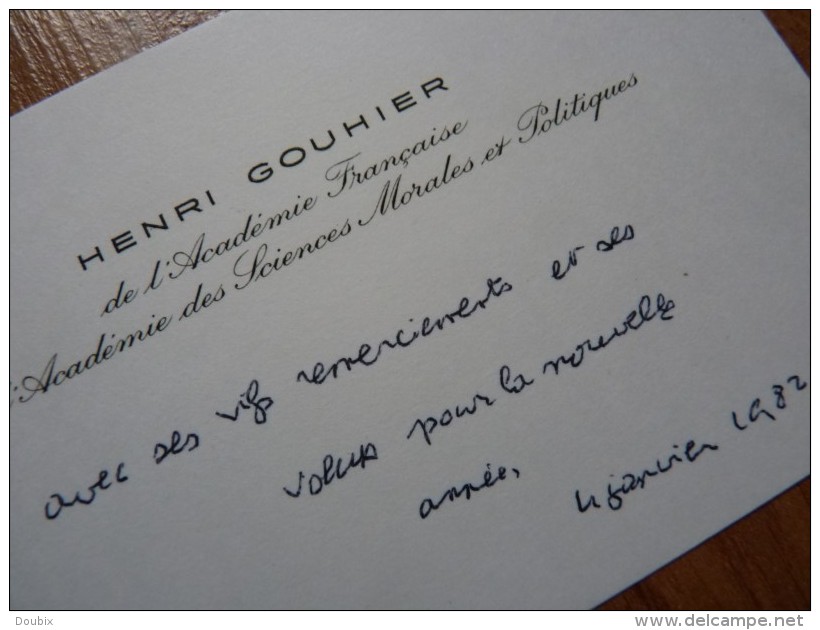 HENRI GOUHIER
de l'Académie Française
l'Académie des Sciences Morales et Politiques
avec ses vifs remerciements et ses
voeux pour la nouvelle
année,
4 janvier 1982
Doubix
www.delcampe.net